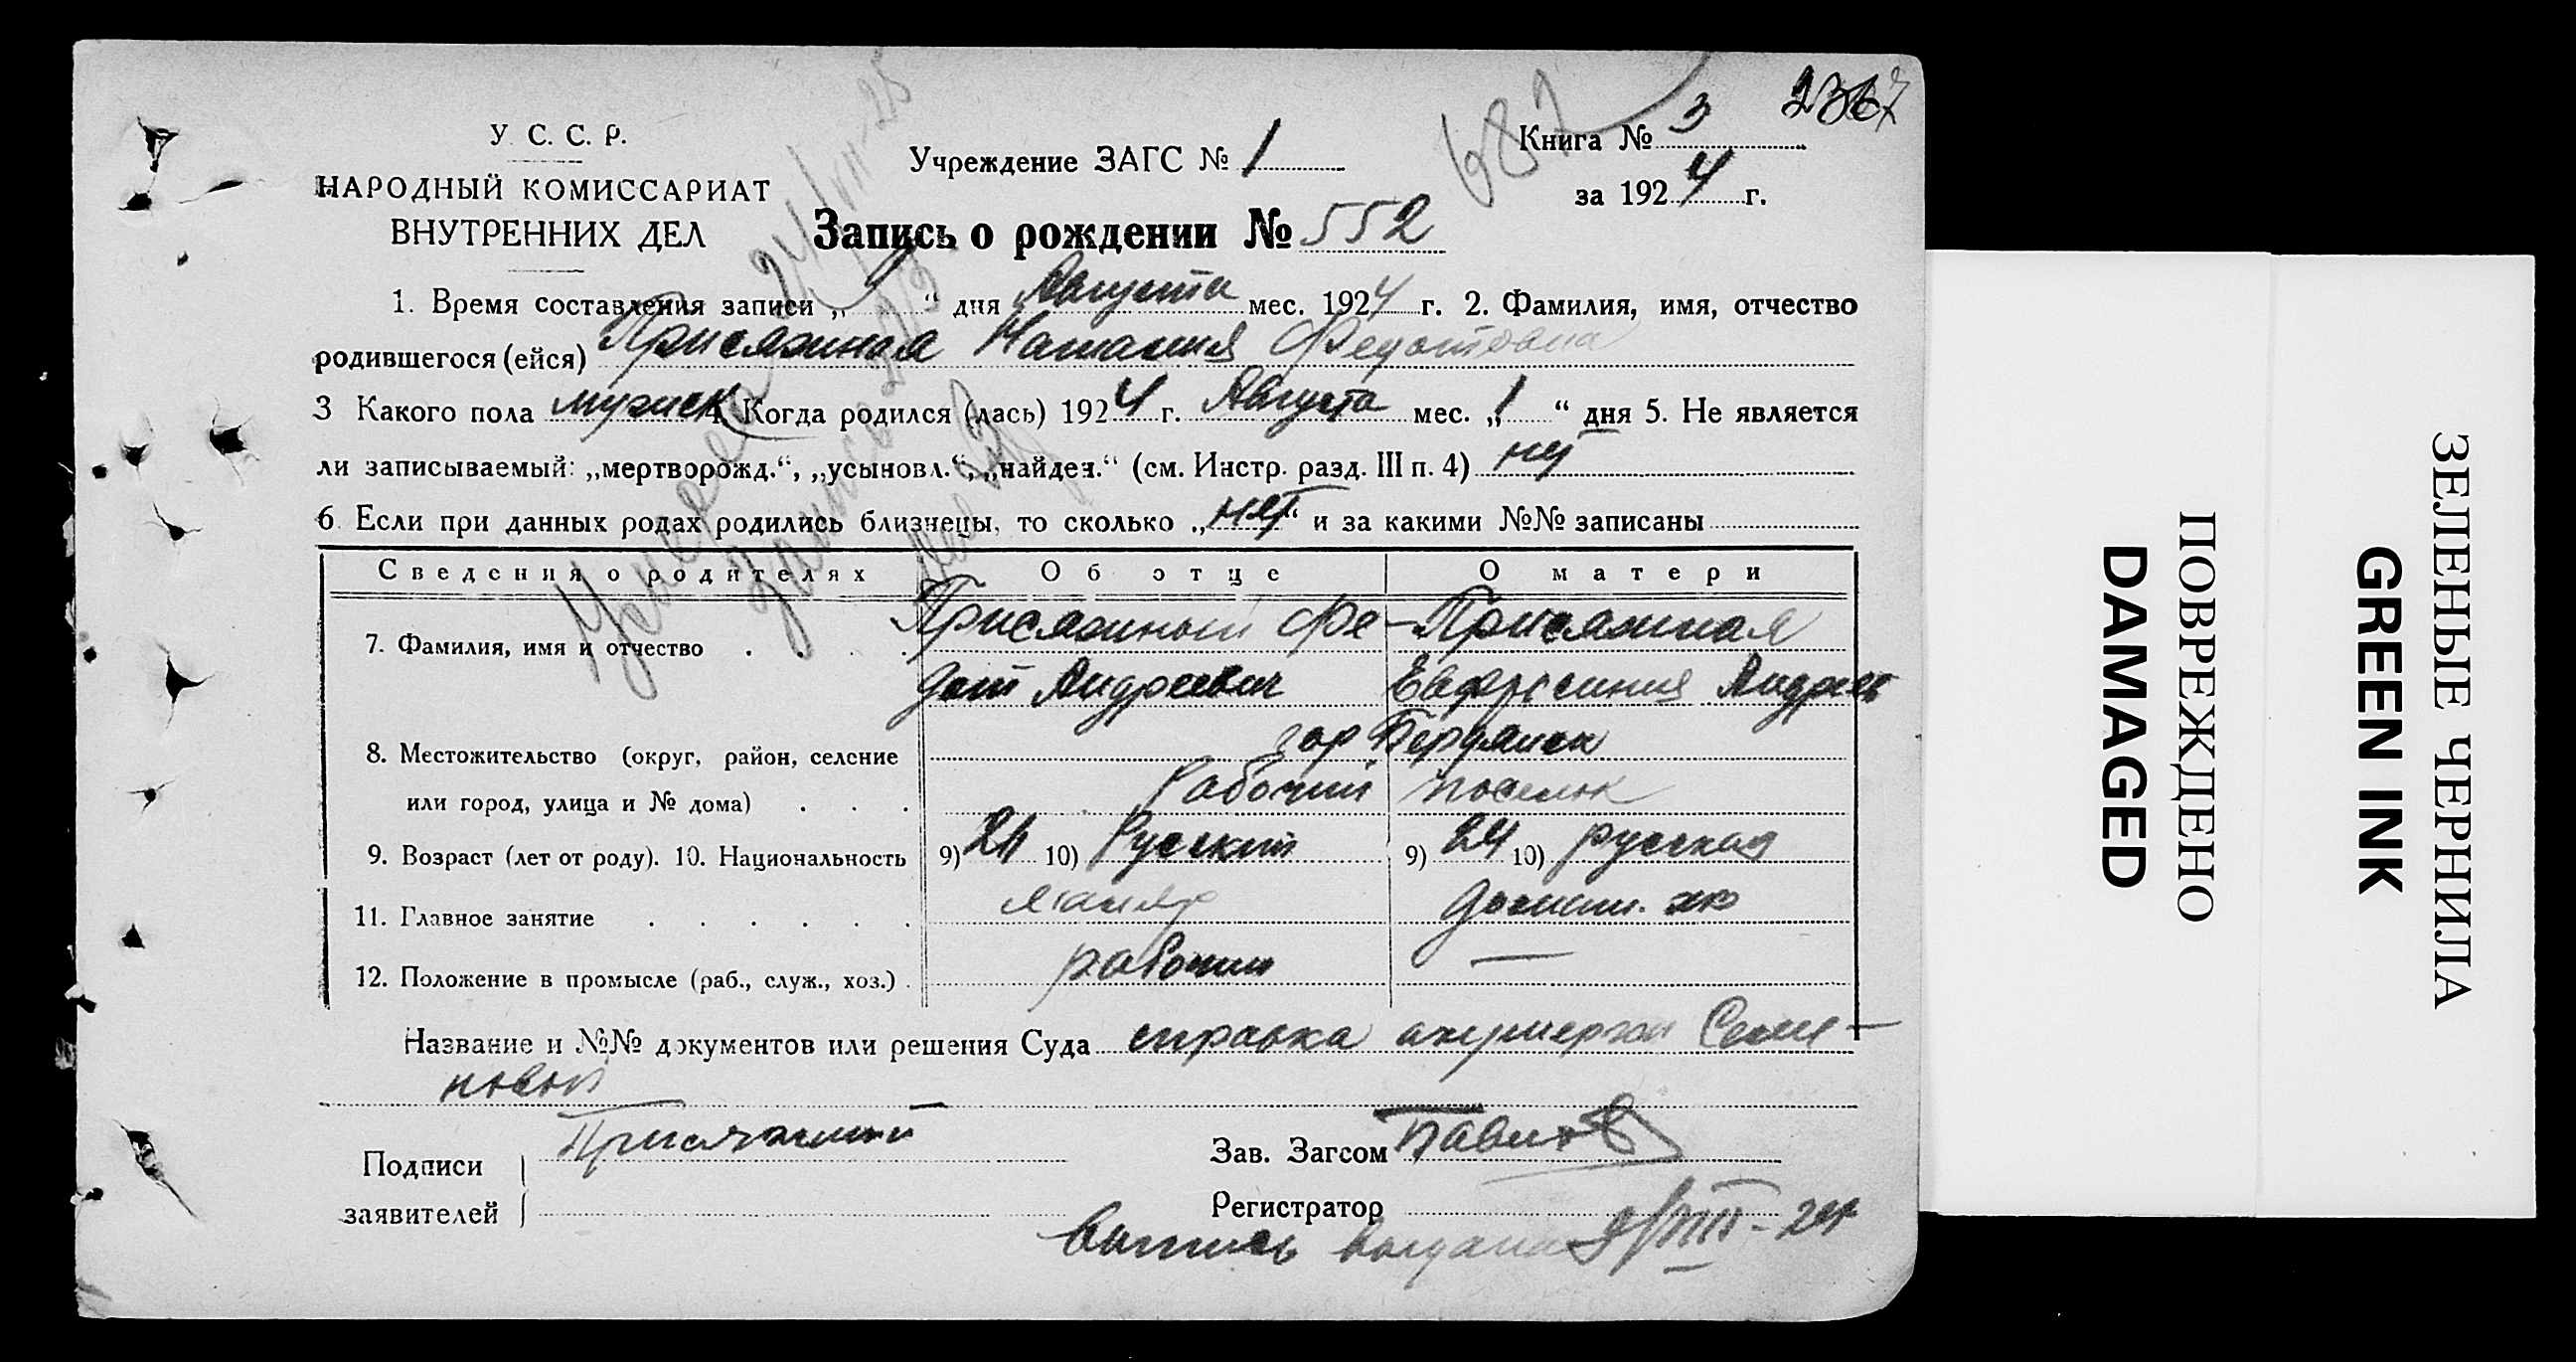 2367
687
Книга № 3
У. С. С. Р.
Учреждение ЗАГС № 1
за 1924 г.
НАРОДНЫЙ КОМИССАРИАТ
ВНУТРЕННИХ ДЕЛ
Запись о рождении № 552
1. Время составления записи „9“ дня Августа мес. 1924 г. 2. Фамилия, имя, отчество
родившегося (ейся) Присяжная Наталия Федотовна
3 Какого пола мужск 4. Когда родился (лась) 1924 г. Августа мес. „1“ дня 5. Не является
ли записываемый: „мертворожд.“, „усыновл.“, „найден.“ (см. Инстр. разд. III п. 4) нет
6. Если при данных родах родились близнецы, то сколько „нет“ и за какими №№ записаны
Умерла 24/VIII-25
Запись
Сведения о родителях Об отце О матери
7. Фамилия, имя и отчество Присяжный Фе- Присяжная
дот Андреевич Евфросиния Андреев
8. Местожительство (округ, район, селение гор Бердянск
или город, улица и № дома) Рабочий поселок
9. Возраст (лет от роду). 10. Национальность 9) 24 10) Русский 9) 24 10) русская
11. Главное занятие маляр домашн. хоз
12. Положение в промысле (раб., служ., хоз.) рабочий —
Название и №№ документов или решения Суда справка акушерки Семе-
новой
Подписи заявителей Присяжный
Зав. Загсом
Регистратор
Выпись выдана 9/VIII-24
ПОВРЕЖДЕНО
DAMAGED
ЗЕЛЕНЫЕ ЧЕРНИЛА
GREEN INK